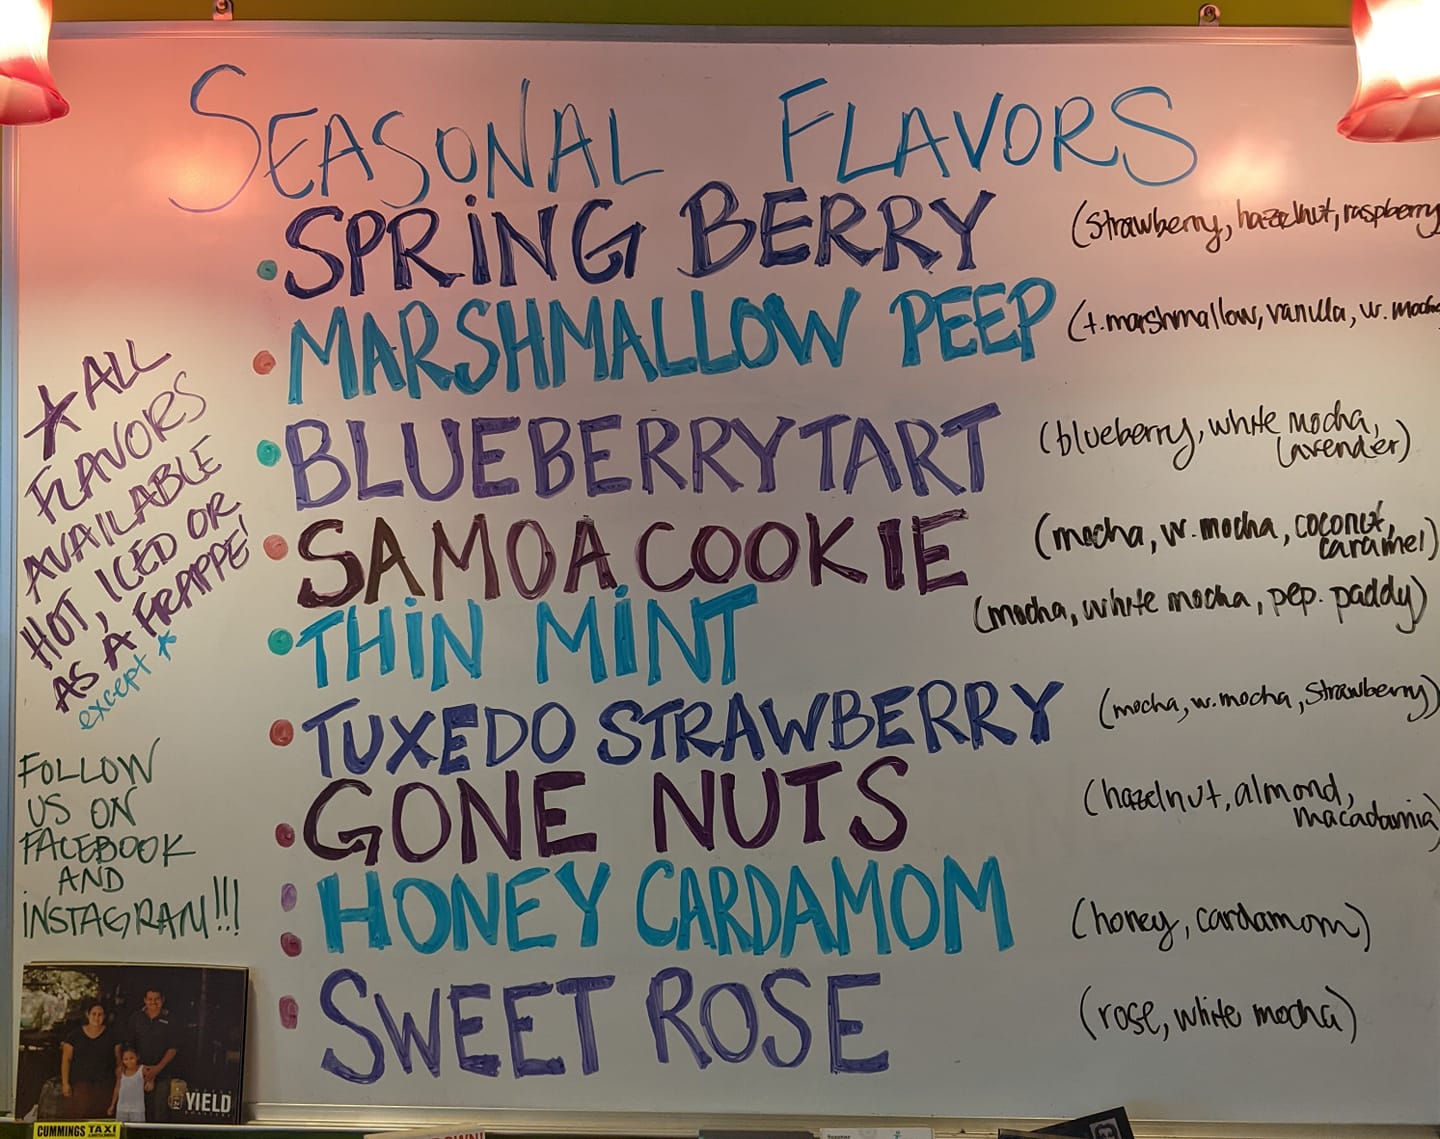 SEASONAL FLAVORS
SPRING BERRY (strawberry, hazelnut, raspberry
MARSHMALLOW PEEP (t.marshmallow, vanilla, w. mocha
BLUEBERRY TART (blueberry, white mocha,
lavender)
SAMOA COOKIE (mocha, w. mocha, coconut,
caramel)
THIN MINT (mocha, white mocha, pep. paddy)
TUXEDO STRAWBERRY (mocha, w. mocha, strawberry)
GONE NUTS (hazelnut, almond,
macadamia)
HONEY CARDAMOM (honey, cardamom)
SWEET ROSE (rose, white mocha)
* ALL
FLAVORS
AVAILABLE
HOT, ICED OR
AS A FRAPPE'
except *
FOLLOW
US ON
FACEBOOK
AND
INSTAGRAM!!!
YIELD
CUMMINGS TAXI